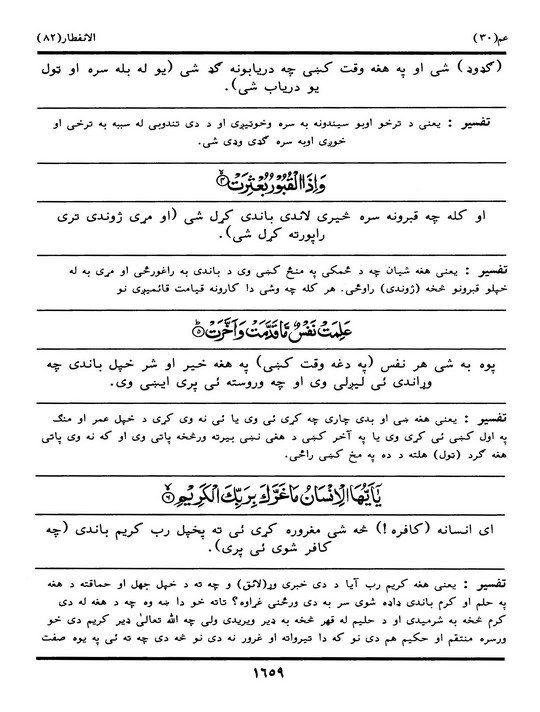 عم(٣٠)
الانفطار(٨٢)
(ګډوډ) شی او په هغه وقت کښی چه دریابونه ګډ شی (یو له بله سره او ټول
یو دریاب شی).
تفسیر : یعنی د ترخو اوبو سیندونه به سره وخوټیږی او د دی تندوبی له سببه به ترخی او
خوږی اوبه سره ګډی وډی شی.
وَاِذَا الْقُبُوْرُ بُعْثِرَتْ ۙ﴿٤﴾
او کله چه قبرونه سره څیری لاندی باندی کړل شی (او مړی ژوندی تری
راپورته کړل شی).
تفسیر : یعنی هغه شیان چه د ځمکی په منځ کښی وی د باندی به راغورځی او مړی به له
خپلو قبرونو څخه (ژوندی) راوځی. هر کله چه وشی دا کارونه قیامت قائمیږی نو
عَلِمَتْ نَفْسٌ مَّا قَدَّمَتْ وَاَخَّرَتْ ؕ﴿٥﴾
پوه به شی هر نفس (په دغه وقت کښی) په هغه خیر او شر خپل باندی چه
وړاندی ئی لیږلی وی او چه وروسته ئی پری ایښی وی.
تفسیر : یعنی هغه ښی او بدی چاری چه کړی ئی وی یا ئی نه وی کړی د خپل عمر او منګ
په اول کښی ئی کړی وی یا په آخر کښی د هغی نښی بیرته ورڅخه پاتی وی او که نه وی پاتی
هغه ګرد (ټول) هلته د ده په مخ کښی راځی.
يٰۤاَيُّهَا الْاِنْسَانُ مَا غَرَّكَ بِرَبِّكَ الْكَرِيْمِ ۙ﴿٦﴾
ای انسانه (کافره!) څه شی مغروره کړی ئی ته پخپل رب کریم باندی (چه
کافر شوی ئی پری).
تفسیر : یعنی هغه کریم رب آیا د دی خبری وړ(لائق) و چه ته د خپل جهل او حماقته د هغه
په حلم او کرم باندی داډه شوی سر به دی ورڅنی غړاوه؟ تاته خو دا ښه وه چه د هغه له دی
کرم څخه به شرمیدی او د حلیم له قهر څخه به ډیر ویریدی ولی چه الله تعالیٰ ډیر کریم دی خو
ورسره منتقم او حکیم هم دی نو که دا تیرواته او غرور نه دی نو څه دی چه ته ئی په یوه صفت
١٦٥٩